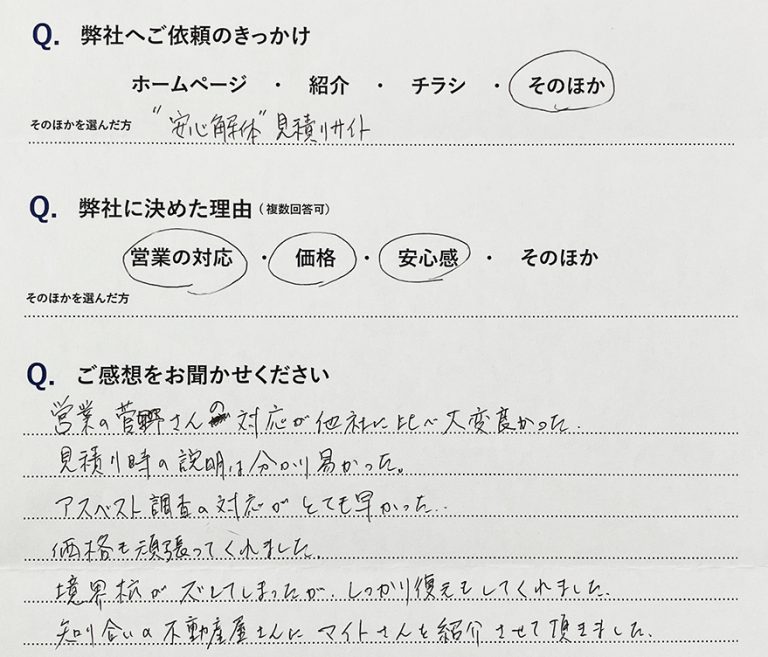 Q. 弊社へご依頼のきっかけ
ホームページ ・ 紹介 ・ チラシ ・ そのほか
そのほかを選んだ方 "安心解体"見積りサイト
Q. 弊社に決めた理由（複数回答可）
営業の対応 ・ 価格 ・ 安心感 ・ そのほか
そのほかを選んだ方
Q. ご感想をお聞かせください
営業の菅野さんの対応が他社に比べ大変良かった.
見積り時の説明は分かり易かった。
アスベスト調査の対応がとても早かった.
価格も頑張ってくれました.
境界杭がズレてしまったが、しっかり復元もしてくれました.
知り合いの不動産屋さんにマイトさんを紹介させて頂きました.